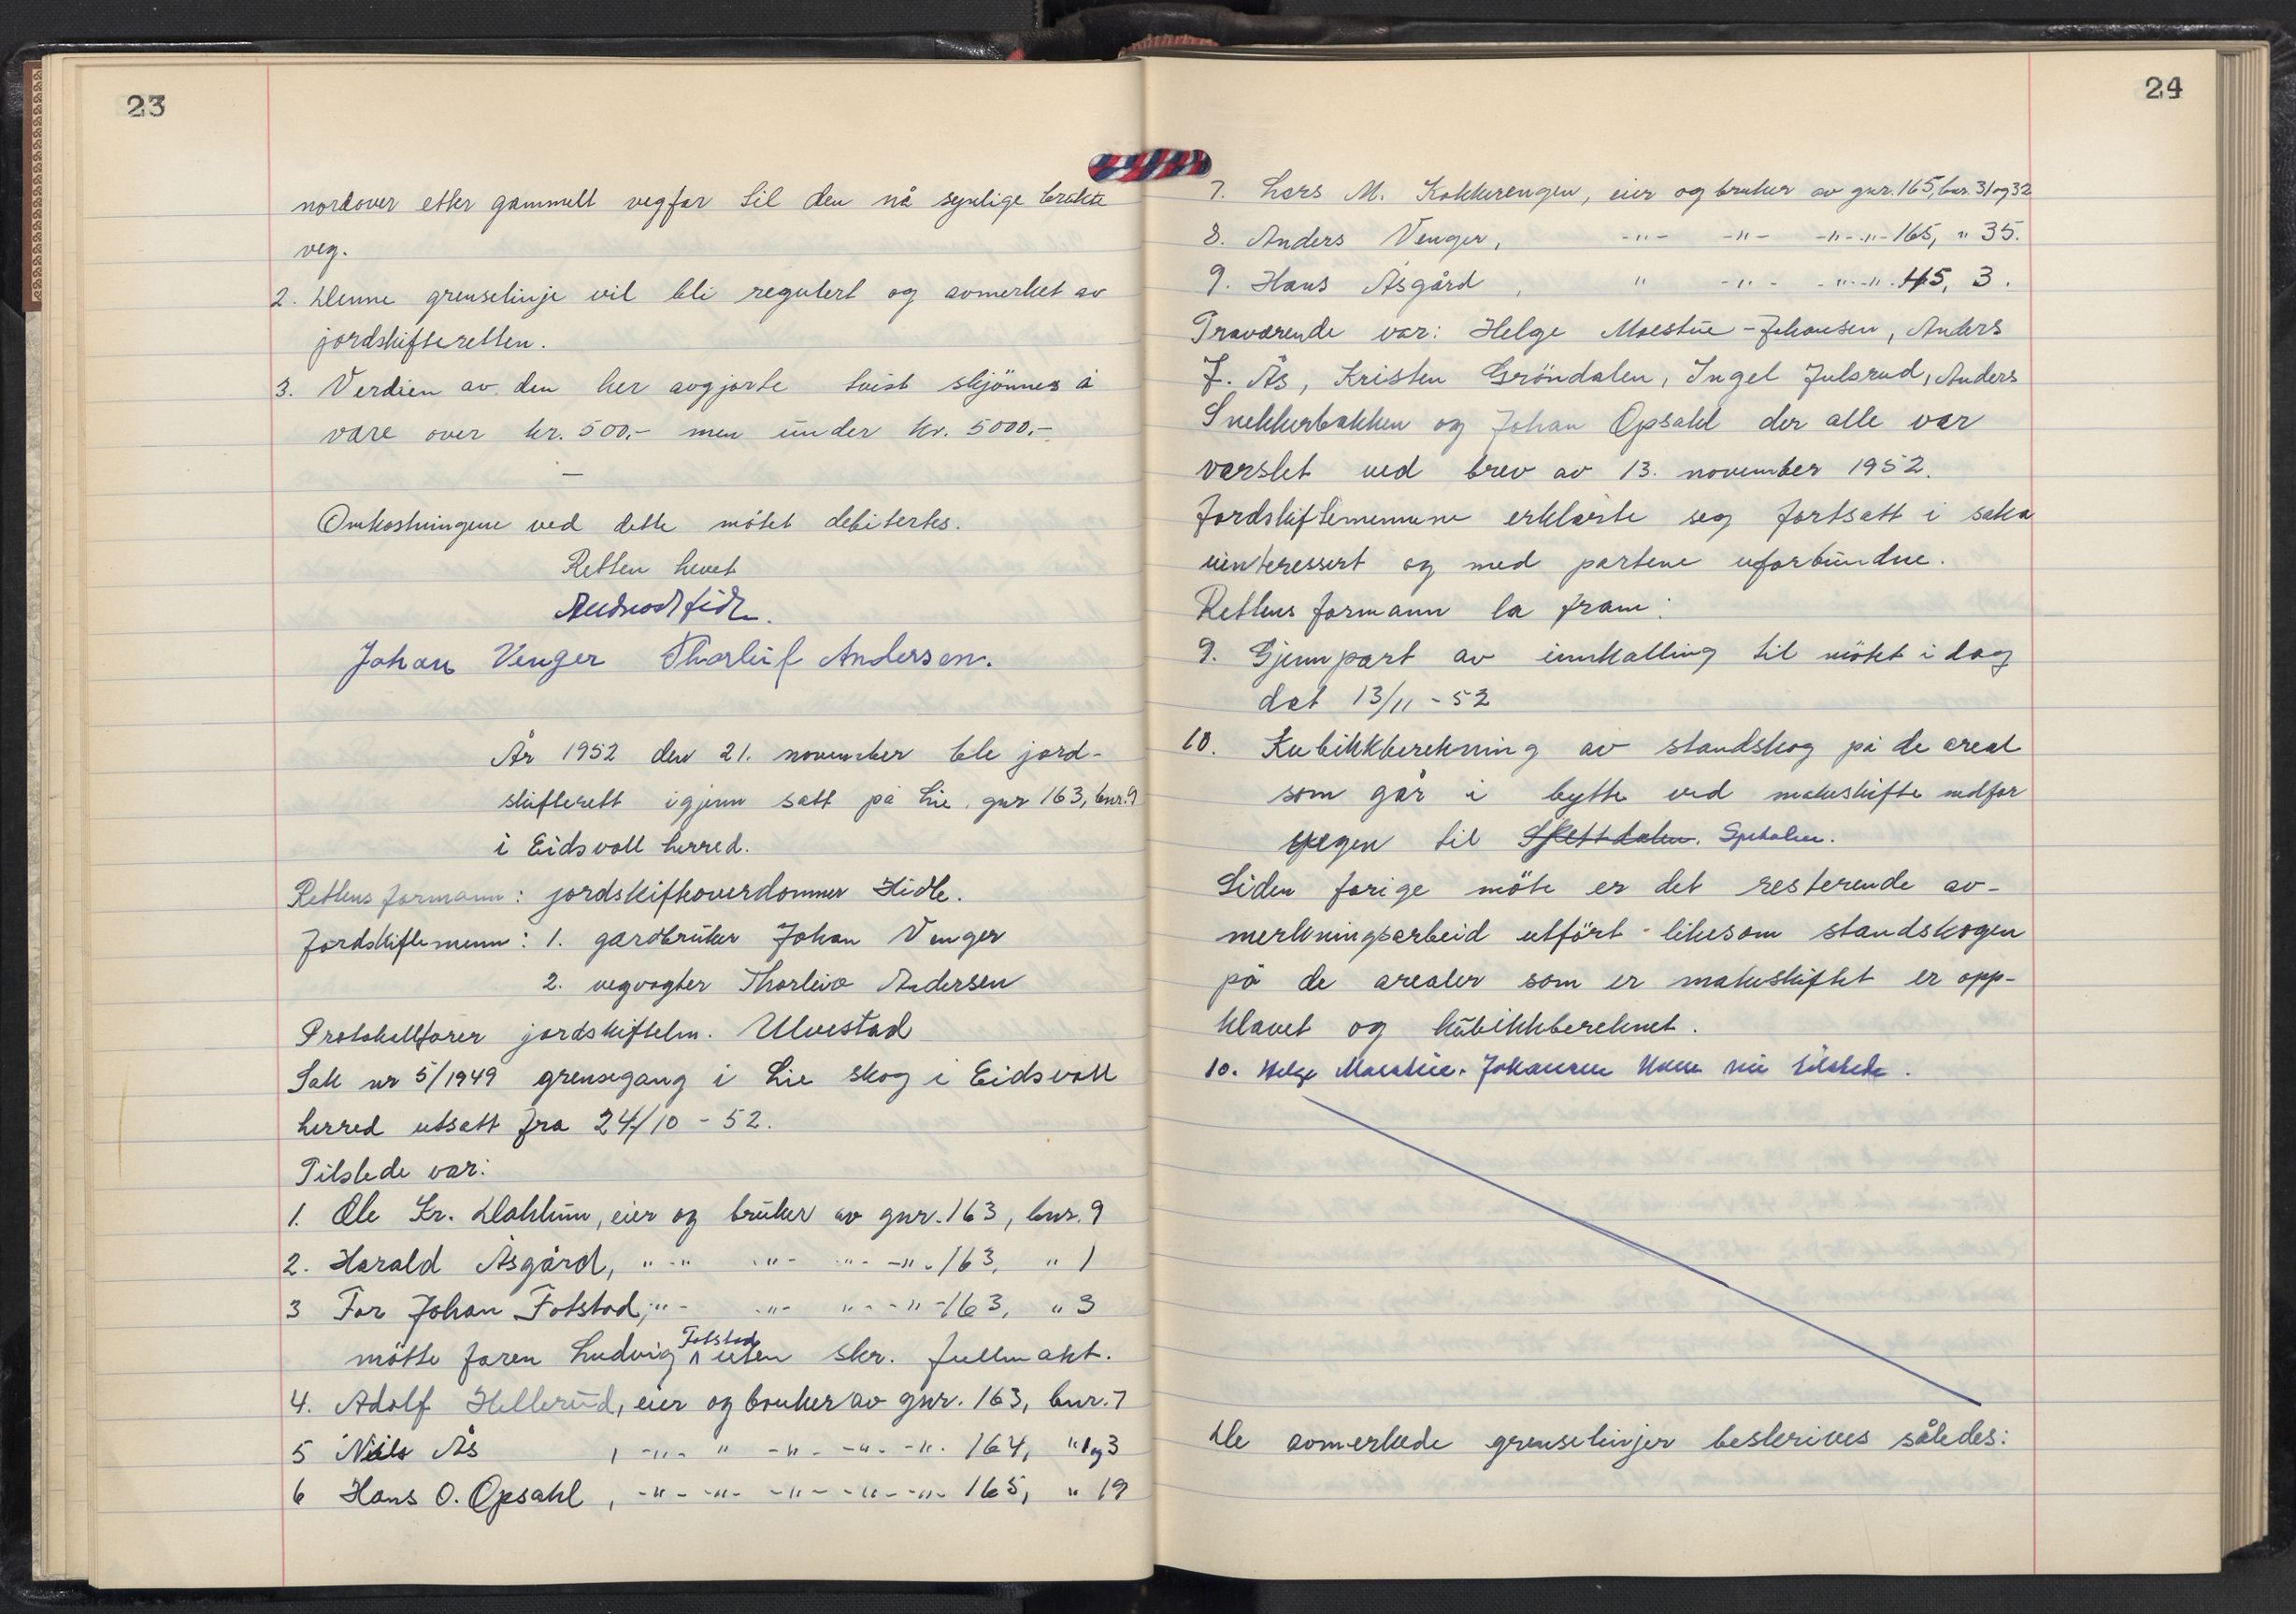 23
nordover etter gammelt vegfar til den nå synlige brukte
veg.
2. Denne grenselinje vil bli regulert og avmerket av
jordskifteretten.
3. Verdien av den her avgjorte tvist skjönnes å
være over kr. 500,- men under kr. 5000,-.
—
Omkostningene ved dette mötet debitertes.
Retten hevet
Johan Venger Thorleif Andersen.
År 1952 den 21. november ble jord-
skifterett igjenn satt på Lie, gnr 163, bnr. 9
i Eidsvoll herred.
Rettens formann: jordskifteoverdommer Hidle.
Jordskiftemenn: 1. gardbruker Johan Venger
2. vegvogter Thorleiv Andersen
Protokollförer jordskiftelm. Ulvestad
Sak nr 5/1949 grensegang i Lie skog i Eidsvoll
herred utsatt fra 24/10 - 52.
Tilstede var:
1. Ole Kr. Dahlum, eier og bruker av gnr. 163, bnr. 9
2. Harald Åsgård, " -" -"- -"- -"- 163, " 1
3 For Johan Fotstad, -"- -"- "- -"- 163, " 3
mötte faren Ludvig Fotstad uten skr. fullmakt.
4. Adolf Hellerud, eier og bruker av gnr. 163, bnr. 7
5 Nils Ås , -"- " -"- -"- -"- 164, " 1 og 3
6 Hans O. Opsahl, -"- -"- -"- -"- -"- 165, " 19
24
7. Lars M. Kokkerengen, eier og bruker av gnr. 165, bnr. 31 og 32
8. Anders Venger, -"- -"- -"- -"- 165, " 35.
9. Hans Åsgård , " -"- -"- -". 45, 3.
Fraværende var: Helge Moestue-Johansen, Anders
J. Ås, Kristen Gröndalen, Ingel Julsrud, Anders
Snekkerbakken og Johan Opsahl der alle var
varslet ved brev av 13. november 1952.
Jordskiftemennene erklærte seg fortsatt i saka
uinteressert og med partene uforbundne.
Rettens formann la fram:
9. Gjennpart av innkalling til mötet i dag
dat 13/11 - 52
10. Kubikkberekning av standskog på de areal
som går i bytte ved makeskifte nedfor
vegen til Spetalen.
Siden forige möte er det resterende av-
merkningsarbeid utfört likesom standskogen
på de arealer som er makeskiftet er opp-
klavet og kubikkbereknet.
10. Helge Moestue-Johansen kom nu tilstede.
De avmerkede grenselinjer beskrives således: